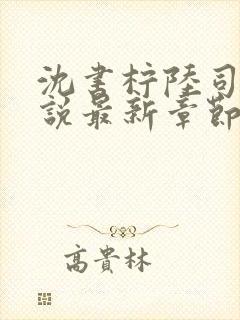 沈書柠陸司
說最新章節
高貴林